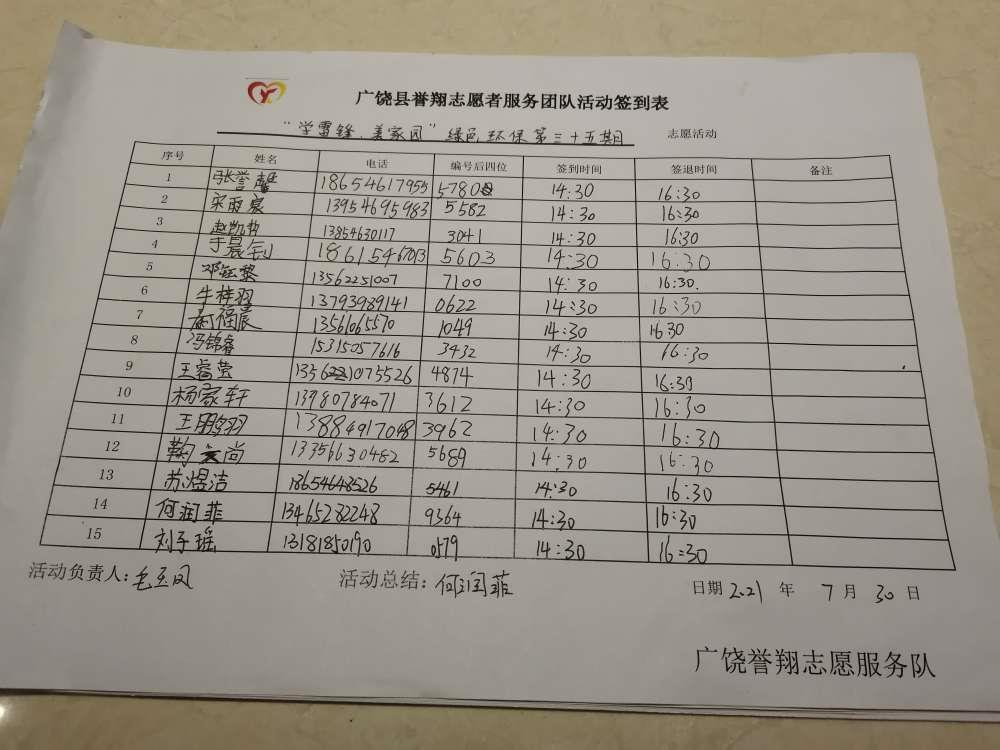 广饶县誉翔志愿者服务团队活动签到表
"学雷锋、美家园"绿色环保第三十五期 志愿活动
序号 姓名 电话 编号后四位 签到时间 签退时间 备注
1 张誉馨 18654617955 5780 14:30 16:30
2 宋雨宸 13954695983 5582 14:30 16:30
3 赵凯哲 13854630117 3041 14:30 16:30
4 于晨钊 18615467013 5603 14:30 16:30
5 邓钰黎 13562251007 7100 14:30 16:30.
6 牛梓羽 13793989141 0622 14:30 16:30
7 福晨 13561065570 1049 14:30 16:30
8 冯锦睿 15315057616 3432 14:30 16:30
9 王蓉莹 13561075526 4874 14:30 16:30
10 杨家轩 13980784071 3612 14:30 16:30
11 王鹏羽 13884917048 3962 14:30 16:30
12 鞠尚 13356630482 5689 14:30 16:30
13 苏煜洁 18654648526 5461 14:30 16:30
14 何润菲 13465282248 9364 14:30 16:30
15 刘子瑶 13181850190 0579 14:30 16:30
活动负责人:毛至凤 活动总结:何润菲 日期2021年7月30日
广饶誉翔志愿服务队